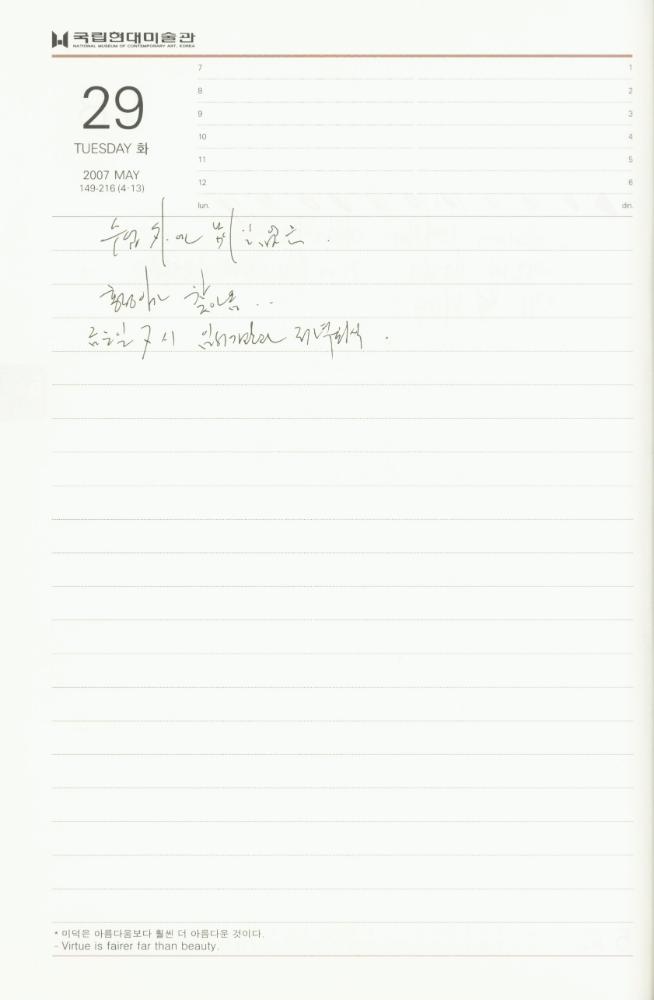 국립현대미술관
NATIONAL MUSEUM OF CONTEMPORARY ART, KOREA
29
TUESDAY 화
2007 MAY
149-216 (4-13)
7 1
8 2
9 3
10 4
11 5
12 6
lun. din.
수업 외엔 별 일 없음.
찾아옴..
금요일 7시 저녁회식.
* 미덕은 아름다움보다 훨씬 더 아름다운 것이다.
- Virtue is fairer far than beauty.